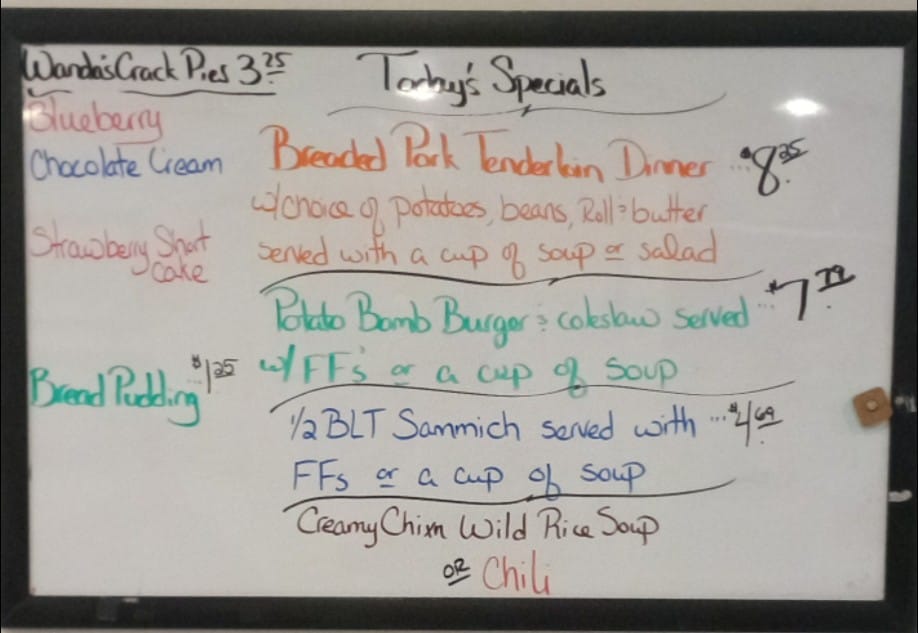 Wanda's Crack Pies 3.25
Blueberry
Chocolate Cream
Strawberry Short
cake
Bread Pudding ...$1.25
Today's Specials
Breaded Pork Tenderloin Dinner ...$8.25
w/choice of potatoes, beans, Roll & butter
served with a cup of soup or salad
Potato Bomb Burger & coleslaw served ...$7.79
w/ FF's or a cup of soup
1/2 BLT Sammich served with ...$4.69
FFs or a cup of soup
Creamy Chixn Wild Rice Soup
OR Chili